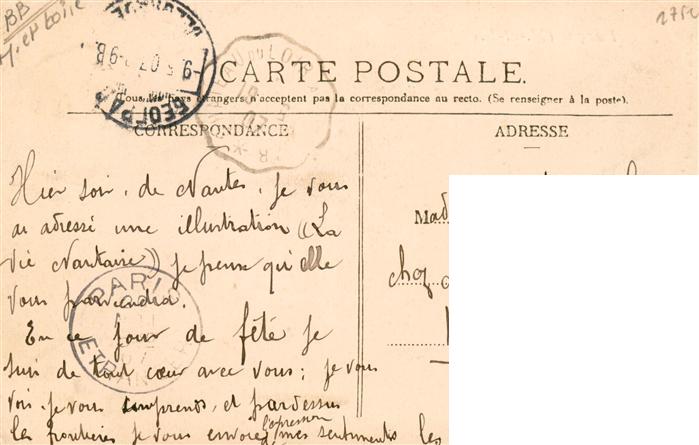 BB
M. et Loire
2750
CARTE POSTALE.
Tous les pays étrangers n'acceptent pas la correspondance au recto. (Se renseigner à la poste).
CORRESPONDANCE
ADRESSE
Hier soir, de Nantes, je vous
ai adressé une illustration ((La
Vie Nantaise)) je pense qu'elle
vous parviendra.
En ce jour de fête je
suis de tout cœur avec vous; je vous
vois, je vous comprends, et pardessus
les frontières je vous envoie l'expression
mes sentiments les
Mad
chez
БЕОГРАД
PARIS
ETRANGER